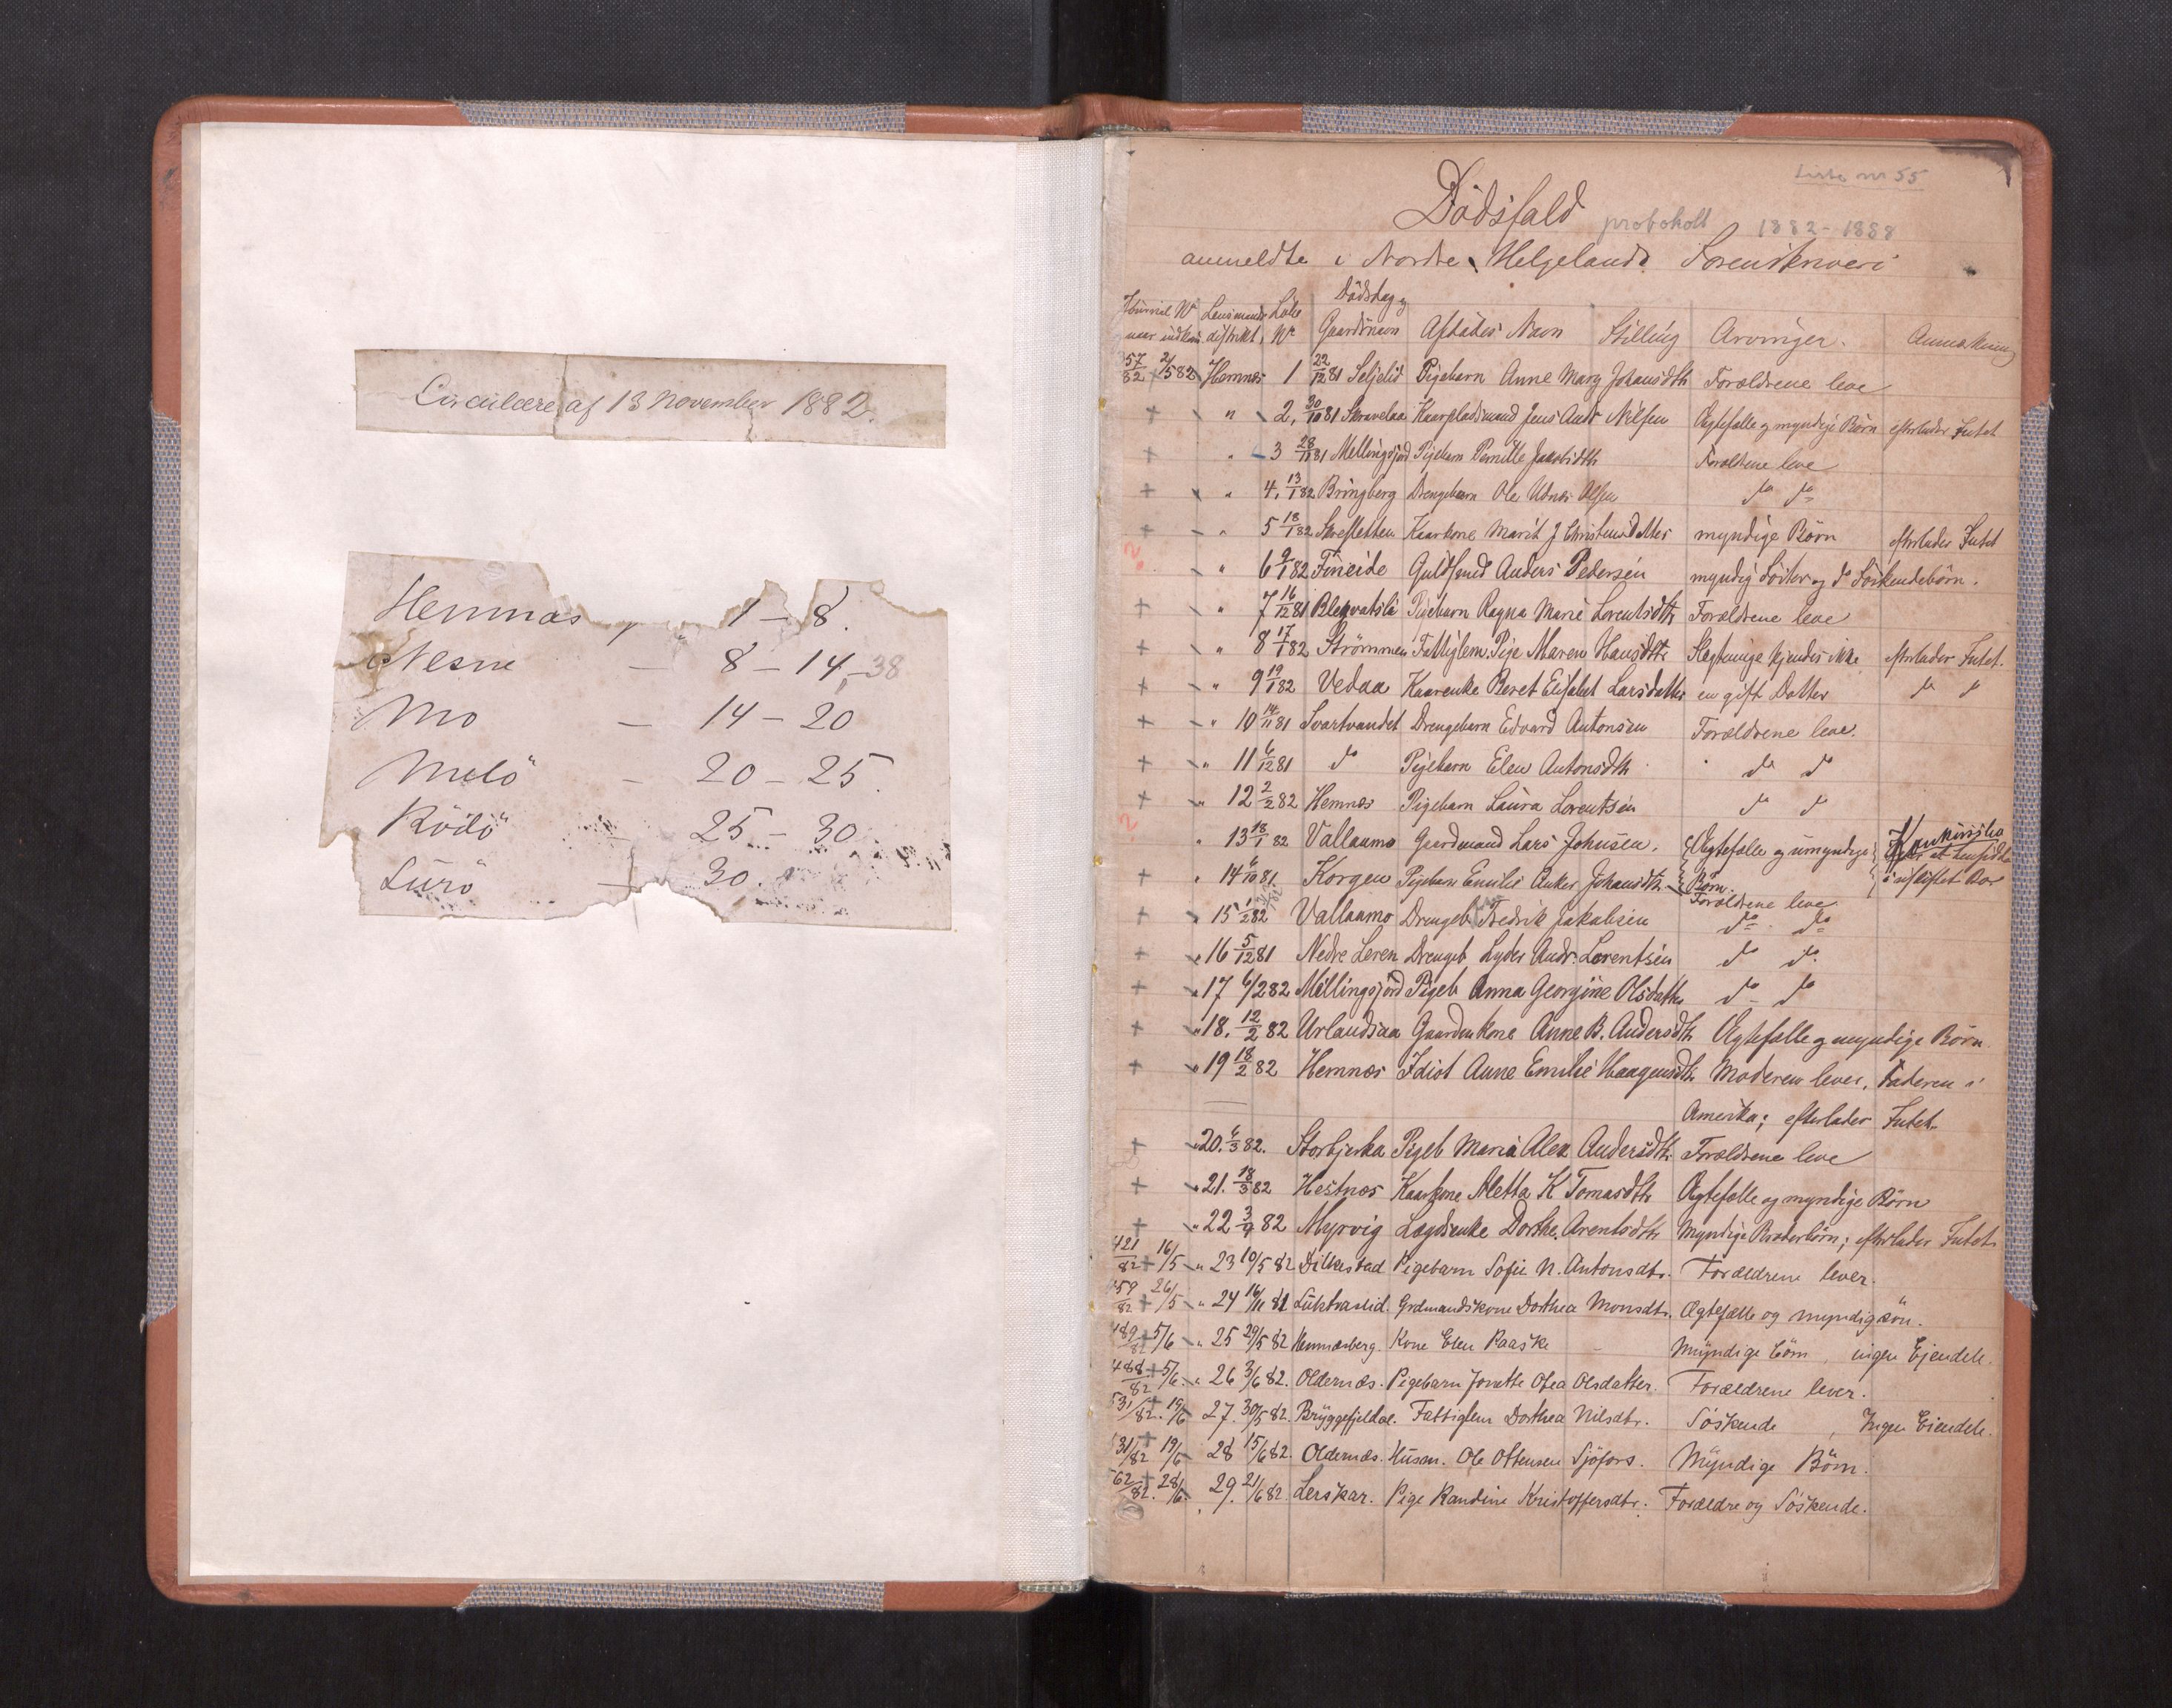 Circulære af 13 November 1882.
Hemnæs 1 – 8.
Nesne – 8 – 14, – 38
Mo – 14 – 20
Melö – 20 – 25.
Rödö – 25 – 30
Lurö – 30.
Liste nr 55
Dödsfald protokoll 1882-1888
anmeldte i Nordre Helgelands Sorenskriveri
Journal No Lensmands Löbe Dödsdag og
naar indkom distrikt No Gaardsnavn Afdödes Navn Stilling Arvinger. Anmærkning
57/82 2/5 82 Hemnæs 1 22/12 81 Seljelid Pigebarn Anne Marg Johansdtr Forældrene leve
+ " 2, 30/10 81 Skravelaa Kaarpladsmand Jens Andr Nilsen Ægtefælle og myndige Börn efterlader Intet
+ " 3 28/11 81 Mellingsjord Pigebarn Pernille Jakobsdtr Forældrene leve
+ " 4, 13/1 82 Bringberg Drengebarn Ole Olsen do do
+ " 5 18/1 82 Skresletten Kaarkone Marit J Christensdatter myndige Börn efterlader Intet
? " 6 9/1 82 Fineide Guldsmed Anders Pedersen myndig Söster og do Söskendebörn.
+ " 7 16/12 81 Blekvatsli Pigebarn Ragna Marie Lorentsdtr Forældrene leve
+ " 8 17/1 82 Strömmen Fattiglem. Pige Maren Hansdtr Slegtninge kjendes ikke efterlader Intet.
+ " 9 19/1 82 Vedaa Kaarenke Beret Elisabet Larsdatter en gift Datter do do
+ " 10 14/11 81 Svartvandet Drengebarn Edvard Antonsen Forældrene leve.
+ " 11 6/12 81 do Pigebarn Elen Antonsdtr do do
+ " 12 2/2 82 Hemnæs Pigebarn Laura Lorentsen do do
? " 13 18/1 82 Vallaamo Gaardmand Lars Johnsen. Ægtefælle og umyndige Börn. i uskiftet Bo
+ " 14 6/10 81 Korgen Pigebarn Emilie Anker Johansdtr Forældrene leve
+ " 15 1/2 82 Vallaamo Drengeb Fredrik Jakobsen do do
+ " 16 5/12 81 Nedre Leren Drengeb Lyder Andr. Lorentsen do do
+ " 17 6/2 82 Mellingsjord Pigeb Anna Georgine Olsdatter do do
+ " 18. 12/2 82 Urlandsaa Gaardm kone Anne B. Andersdtr Ægtefælle og myndige Börn
+ " 19 18/2 82 Hemnæs Idiot Anne Emilie Haagensdtr Moderen lever, Faderen i
Amerika; efterlader Intet.
+ " 20. 6/3 82. Storbjerka Pigeb Maria Alex Andersdtr Forældrene leve
+ " 21. 18/3 82 Hestnæs Kaarkone Aletta K Tomasdtr Ægtefælle og myndige Börn
+ " 22 3/4 82 Myrvig Lægdsenke Dorthe Arentsdtr Myndige Broderbörn; efterlader Intet
421/82 + 16/5 " 23 10/5 82 Dilkestad Pigebarn Sofie N. Antonsdtr. Forældrene lever.
459/82 + 26/5 " 24 16/11 81 Luktvaslid. Grdmandskone Dorthea Monsdtr. Ægtefælle og myndig sön.
489/82 + 5/6 " 25 29/5 82 Hemnæsberg. Kone Elen Raaske – Myndige börn, ingen Ejendele.
488/82 + 5/6 " 26 3/6 82. Oldernæs. Pigebarn Jonette Ofea Olsdatter. Forældrene lever.
531/82. + 19/6 27. 30/5 82. Bryggefjeldal. Fattiglem Dorthea Nilsdtr. Söskende, Ingen Eiendele.
531/82 + 19/6 28 15/6 82. Oldernæs. Husm. Ole Ottensen Sjöfors. Myndige Börn.
562/82. + 28/6 29. 21/6 82. Lerskar. Pige Randine Kristoffersdtr. Forældre og Söskende.